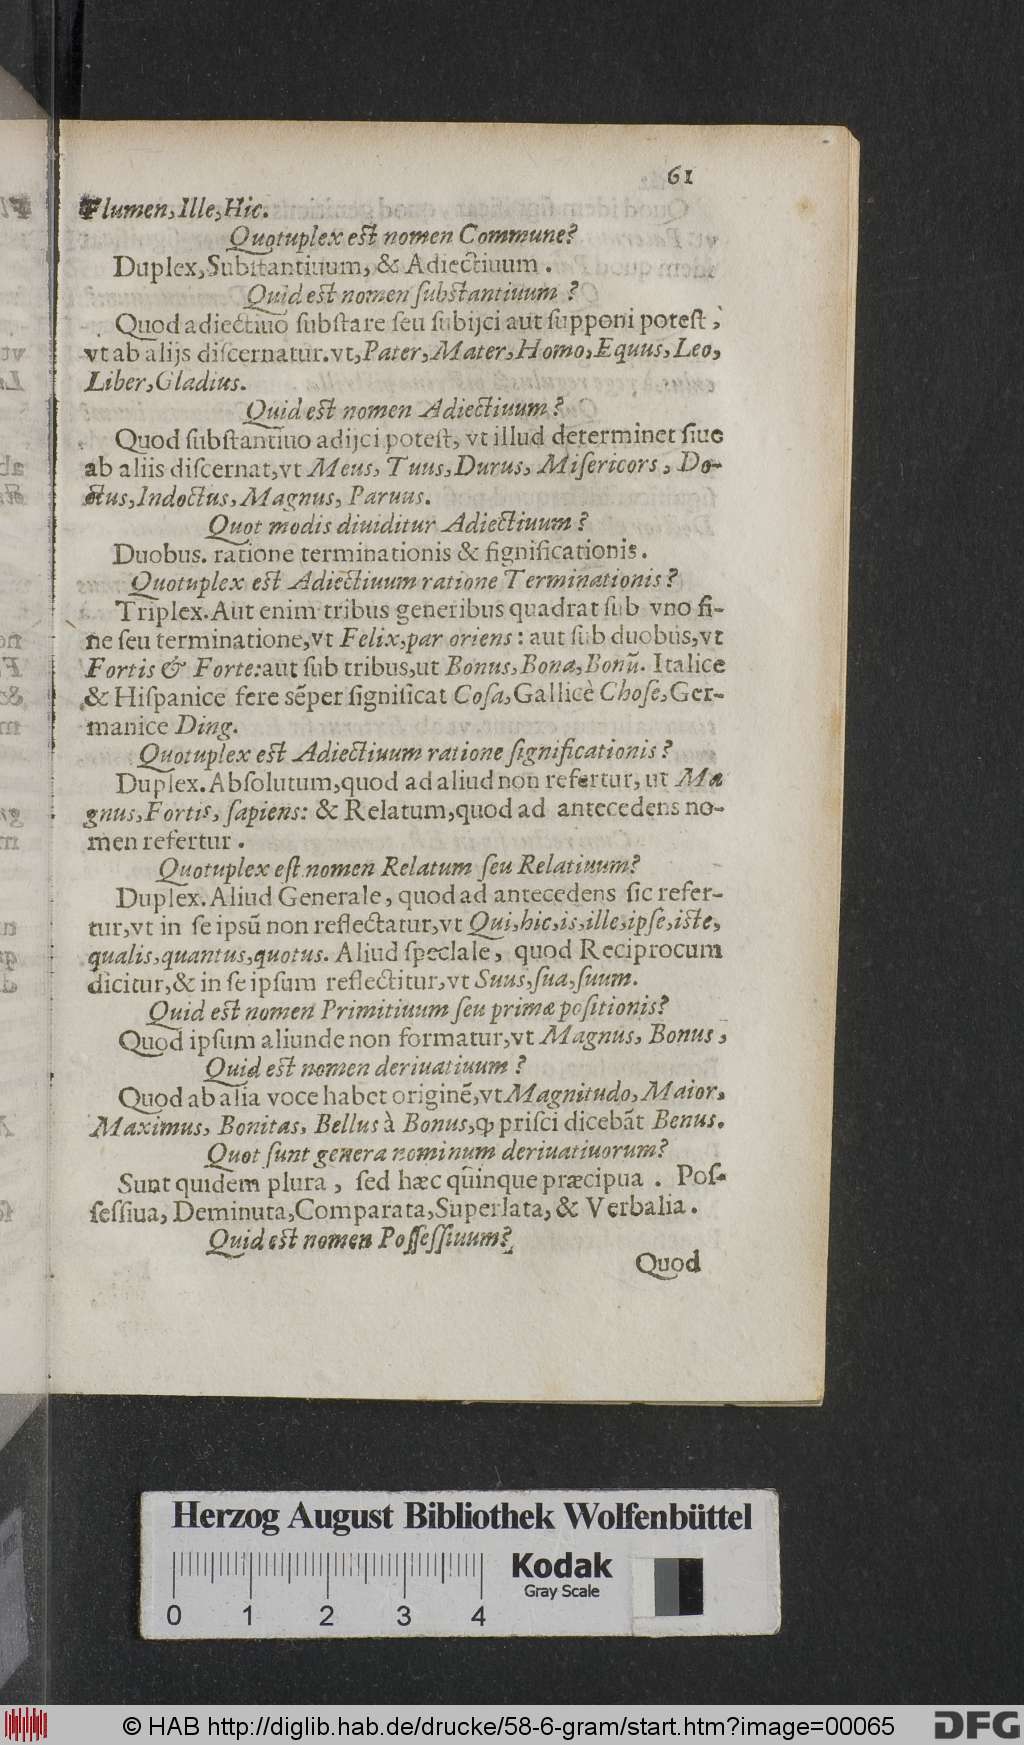 61
Flumen, Ille, Hic.
Quotuplex est nomen Commune?
Duplex, Substantiuum, & Adiectiuum.
Quid est nomen substantiuum?
Quod adiectiuo substare seu subijci aut supponi potest,
vt ab alijs discernatur. vt, Pater, Mater, Homo, Equus, Leo,
Liber, Gladius.
Quid est nomen Adiectiuum?
Quod substantiuo adijci potest, vt illud determinet siue
ab aliis discernat, vt Meus, Tuus, Durus, Misericors, Do-
ctus, Indoctus, Magnus, Paruus.
Quot modis diuiditur Adiectiuum?
Duobus. ratione terminationis & significationis.
Quotuplex est Adiectiuum ratione Terminationis?
Triplex. Aut enim tribus generibus quadrat sub vno fi-
ne seu terminatione, vt Felix, par oriens: aut sub duobus, vt
Fortis & Forte: aut sub tribus, ut Bonus, Bona, Bonũ. Italice
& Hispanice fere sẽper significat Cosa, Gallicè Chose, Ger-
manice Ding.
Quotuplex est Adiectiuum ratione significationis?
Duplex. Absolutum, quod ad aliud non refertur, ut Ma
gnus, Fortis, sapiens: & Relatum, quod ad antecedens no-
men refertur.
Quotuplex est nomen Relatum seu Relatiuum?
Duplex. Aliud Generale, quod ad antecedens sic refer-
tur, vt in se ipsũ non reflectatur, vt Qui, hic, is, ille, ipse, iste,
qualis, quantus, quotus. Aliud speclale, quod Reciprocum
dicitur, & in se ipsum reflectitur, vt Suus, sua, suum.
Quid est nomen Primitiuum seu primæ positionis?
Quod ipsum aliunde non formatur, vt Magnus, Bonus,
Quid est nomen deriuatiuum?
Quod ab alia voce habet originẽ, vt Magnitudo, Maior,
Maximus, Bonitas, Bellus à Bonus, ꝙ prisci dicebãt Benus.
Quot sunt genera nominum deriuatiuorum?
Sunt quidem plura, sed hæc quinque præcipua. Pos-
sessiua, Deminuta, Comparata, Superlata, & Verbalia.
Quid est nomen Possessiuum?
Quod
Herzog August Bibliothek Wolfenbüttel
Kodak
Gray Scale
0 1 2 3 4
© HAB http://diglib.hab.de/drucke/58-6-gram/start.htm?image=00065
DFG